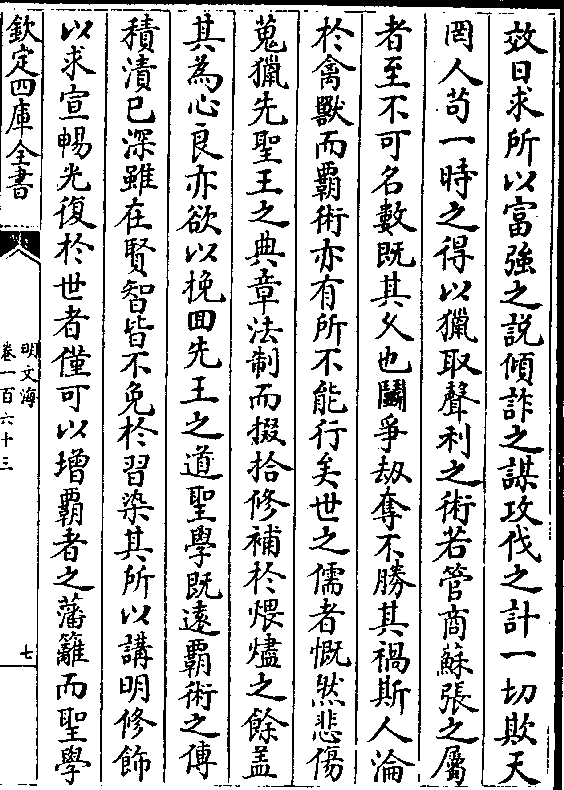 效日求所以富強之説傾詐之謀攻伐之計一切欺天
罔人苟一時之得以獵取聲利之術若管商蘇張之屬
者至不可名數既其乆也鬬爭刼奪不勝其禍斯人淪
於禽獸而覇術亦有所不能行矣世之儒者慨然悲傷
蒐獵先聖王之典章法制而掇拾修補於煨燼之餘盖
其為心良亦欲以挽囬先王之道聖學既遠覇術之傳
積漬已深雖在賢智皆不免於習染其所以講明修飾
以求宣暢光復於世者僅可以増覇者之藩籬而聖學
欽定四庫全書
明文海
卷一百六十三
七